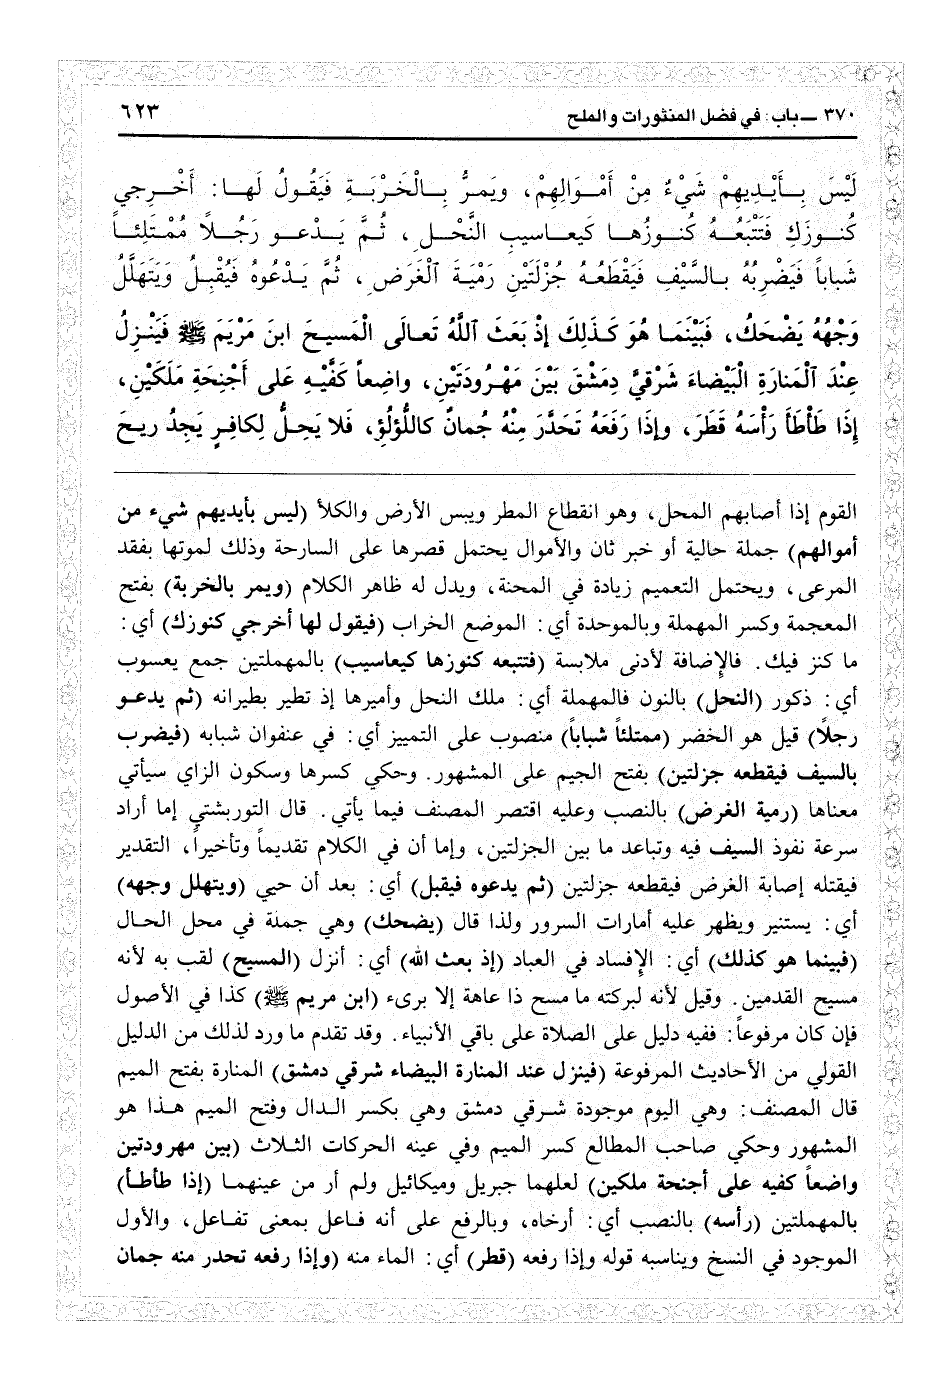 ٣٧٠ ــ باب: في فضل المنثورات والملح ٦٢٣
لَيْسَ بِـأَيْـدِيهِمْ شَيْءٌ مِنْ أَمْـوَالِهِمْ، ويَمرُّ بِـالْخَرْبَـةِ فَيَقُولُ لَهـا: أَخْـرِجي
كُنـوزَكِ فَتَتْبَعُـهُ كُنـوزُهـا كَيعـاسيبِ النَّحْـلِ، ثُـمَّ يَـدْعـو رَجُـلاً مُمْتَلِئـاً
شَباباً فَيَضْرِبُهُ بـالسَّيْفِ فَيَقْطَعُـهُ جُزْلَتَيْنِ رَمْيَـةَ ٱلْغَرَضِ، ثُمَّ يَـدْعُوهُ فَيُقْبِـلُ وَيَتَهَلَّلُ
وَجْهُهُ يَضْحَكُ، فَبَيْنَمَـا هُوَ كَـذَلِكَ إِذْ بَعَثَ ٱللَّهُ تَعـالَى الْمَسيـحَ ابنَ مَرْيَمَ ﷺ فَيَنْـزِلُ
عِنْدَ ٱلْمَنارَةِ الْبَيْضَاءَ شَرْقِيَّ دِمَشْقَ بَيْنَ مَهْـرُودَتَيْنِ، واضِعـاً كَفَّيْـهِ عَلى أَجْنِحَةِ مَلَكَيْنِ،
إِذَا طَأْطَأَ رَأْسَهُ قَطَرَ، وإذَا رَفَعَهُ تَحَدَّرَ مِنْهُ جُمانٌ كاللُّؤْلُؤِ، فَلا يَحِلُّ لِكافِـرٍ يَجِدُ رِيـحَ
القوم إذا أصابهم المحل، وهو انقطاع المطر ويبس الأرض والكلأ (ليس بأيديهم شيء من
أموالهم) جملة حالية أو خبر ثان والأموال يحتمل قصرها على السارحة وذلك لموتها بفقد
المرعى، ويحتمل التعميم زيادة في المحنة، ويدل له ظاهر الكلام (ويمر بالخربة) بفتح
المعجمة وكسر المهملة وبالموحدة أي: الموضع الخراب (فيقول لها أخرجي كنوزك) أي:
ما كنز فيك. فالإضافة لأدنى ملابسة (فتتبعه كنوزها كيعاسيب) بالمهملتين جمع يعسوب
أي: ذكور (النحل) بالنون فالمهملة أي: ملك النحل وأميرها إذ تطير بطيرانه (ثم يدعـو
رجلاً) قيل هو الخضر (ممتلئاً شباباً) منصوب على التمييز أي: في عنفوان شبابه (فيضرب
بالسيف فيقطعه جزلتين) بفتح الجيم على المشهور. وحكي كسرها وسكون الزاي سيأتي
معناها (رمية الغرض) بالنصب وعليه اقتصر المصنف فيما يأتي. قال التوربشتي إما أراد
سرعة نفوذ السيف فيه وتباعد ما بين الجزلتين، وإما أن في الكلام تقديماً وتأخيراً، التقدير
فيقتله إصابة الغرض فيقطعه جزلتين (ثم يدعوه فيقبل) أي: بعد أن حيي (ويتهلل وجهه)
أي: يستنير ويظهر عليه أمارات السرور ولذا قال (يضحك) وهي جملة في محل الحـال
(فبينما هو كذلك) أي: الإفساد في العباد (إذ بعث الله) أي: أنزل (المسيح) لقب به لأنه
مسيح القدمين. وقيل لأنه لبركته ما مسح ذا عاهة إلا برىء (ابن مريم ﷺ) كذا في الأصول
فإن كان مرفوعاً: ففيه دليل على الصلاة على باقي الأنبياء. وقد تقدم ما ورد لذلك من الدليل
القولي من الأحاديث المرفوعة (فينزل عند المنارة البيضاء شرقي دمشق) المنارة بفتح الميم
قال المصنف: وهي اليوم موجودة شـرقي دمشق وهي بكسر الـدال وفتح الميم هـذا هو
المشهور وحكي صاحب المطالع كسر الميم وفي عينه الحركات الثـلاث (بين مهرودتين
واضعاً كفيه على أجنحة ملكين) لعلهما جبريل وميكائيل ولم أر من عينهمـا (إذا طأطأ)
بالمهملتين (رأسه) بالنصب أي: أرخاه، وبالرفع على أنه فـاعل بمعنى تفـاعل، والأول
الموجود في النسخ ويناسبه قوله وإذا رفعه (قطر) أي: الماء منه (وإذا رفعه تحدر منه جمان